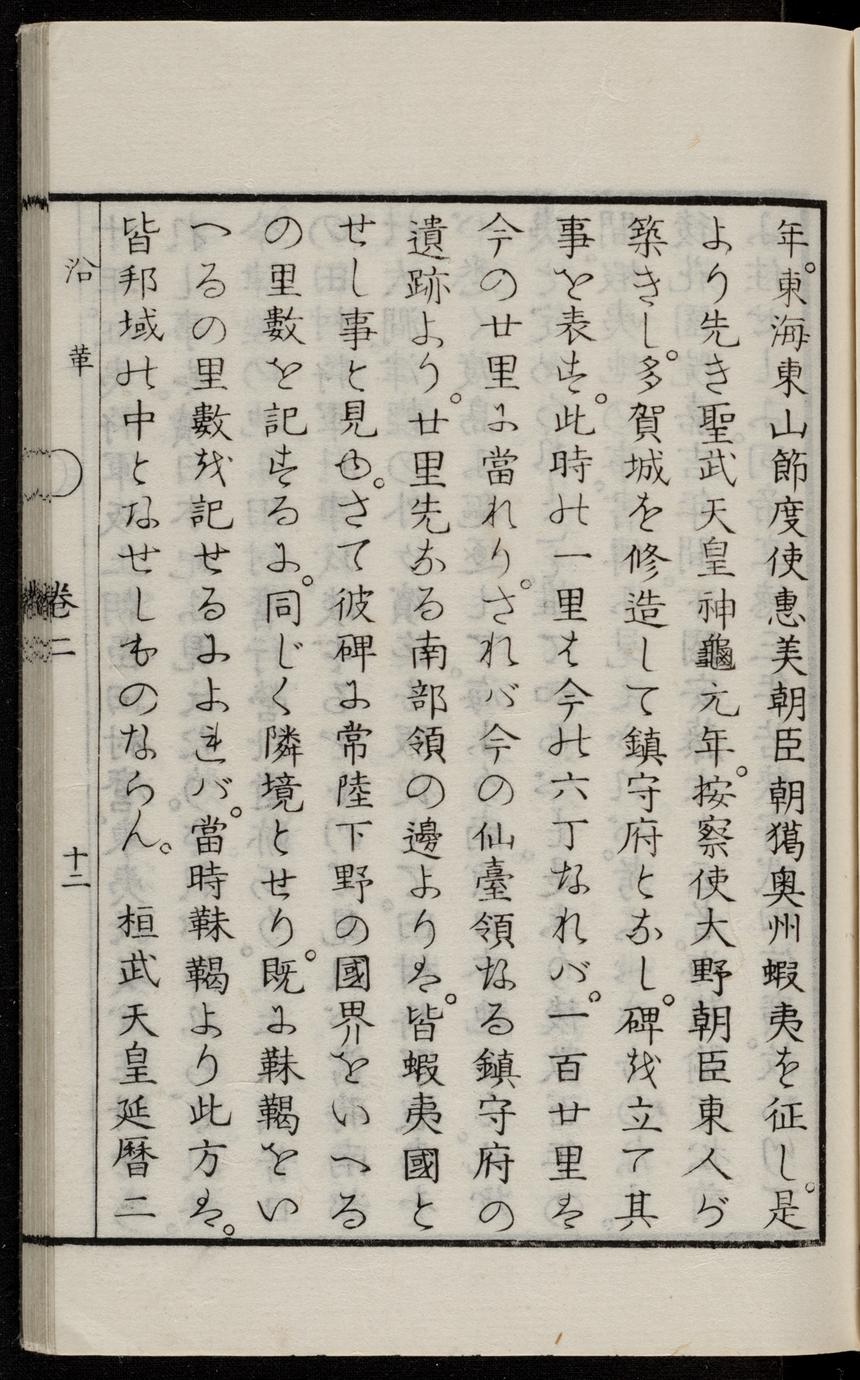 年。東海東山節度使惠美朝臣朝獦奥州蝦夷を征し。是
より先き聖武天皇神龜元年。按察使大野朝臣東人が
築きし。多賀城を修造して鎮守府となし。碑を立て其
事を表す。此時の一里は今の六丁なれバ。一百廿里は
今の廿里に當れり。されバ今の仙臺領なる鎮守府の
遺跡より。廿里先なる南部領の邊よりは。皆蝦夷國と
せし事と見ゆ。さて彼碑に常陸下野の國界をいへる
の里數を記するに。同じく隣境とせり。既に靺鞨をい
へるの里數を記せるによれバ。當時靺鞨より此方は。
皆邦域の中となせしものならん。　桓武天皇延暦二
沿革　卷二　十二